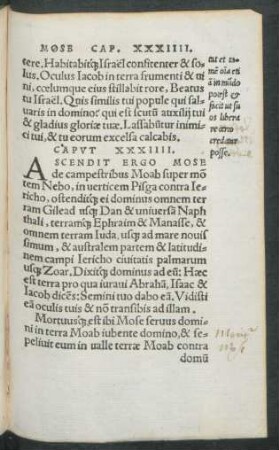 MOSE CAP. XXXIIII.
tere. Habitabitq; Israël confitenter & so-
lus. Oculus Iacob in terra frumenti & ui
ni, cœlumque eius stillabit rore. Beatus
tu Israël. Quis similis tui popule qui sal-
uaris in domino? qui est scutū auxilij tui
& gladius gloriæ tuæ. Lassabūtur inimi-
ci tui, & tu eorum excelsa calcabis.
CAPVT XXXIIII.
ASCENDIT ERGO MOSE
de campestribus Moab super mō
tem Nebo, in verticem Pisga contra Ie-
richo, ostendisq; ei dominus omnem ter
ram Gilead usq; Dan & uniuersā Naph
thali, terramq; Ephraim & Manasse, &
omnem terram Iuda, usq; ad mare nouis
simum, & australem partem & latitudi-
nem campi Iericho ciuitatis palmarum
usq; Zoar. Dixitq; dominus ad eū: Hæc
est terra pro qua iuraui Abrahā, Isaac &
Iacob dicēs: Semini tuo dabo eā. Vidisti
eā oculis tuis & nō transibis ad illam.
Mortuusq; est ibi Mose seruus domi-
ni in terra Moab iubente domino, & se-
peliuit eum in ualle terræ Moab contra
domū
tut et ex-
mē ola eti
ā in mūdo
potest &
ficit ut su
os libera
re uero
credatur
posse.